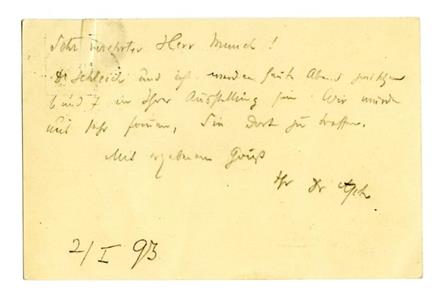 Sehr verehrter Herr Munch!
Dr Schleich und ich werden heute Abend zwischen
6 und 7 in Ihrer Ausstellung sein. Wir würden
uns sehr freuen, Sie dort zu treffen.
Mit ergebenem Gruß
Ihr Dr
2/I 93